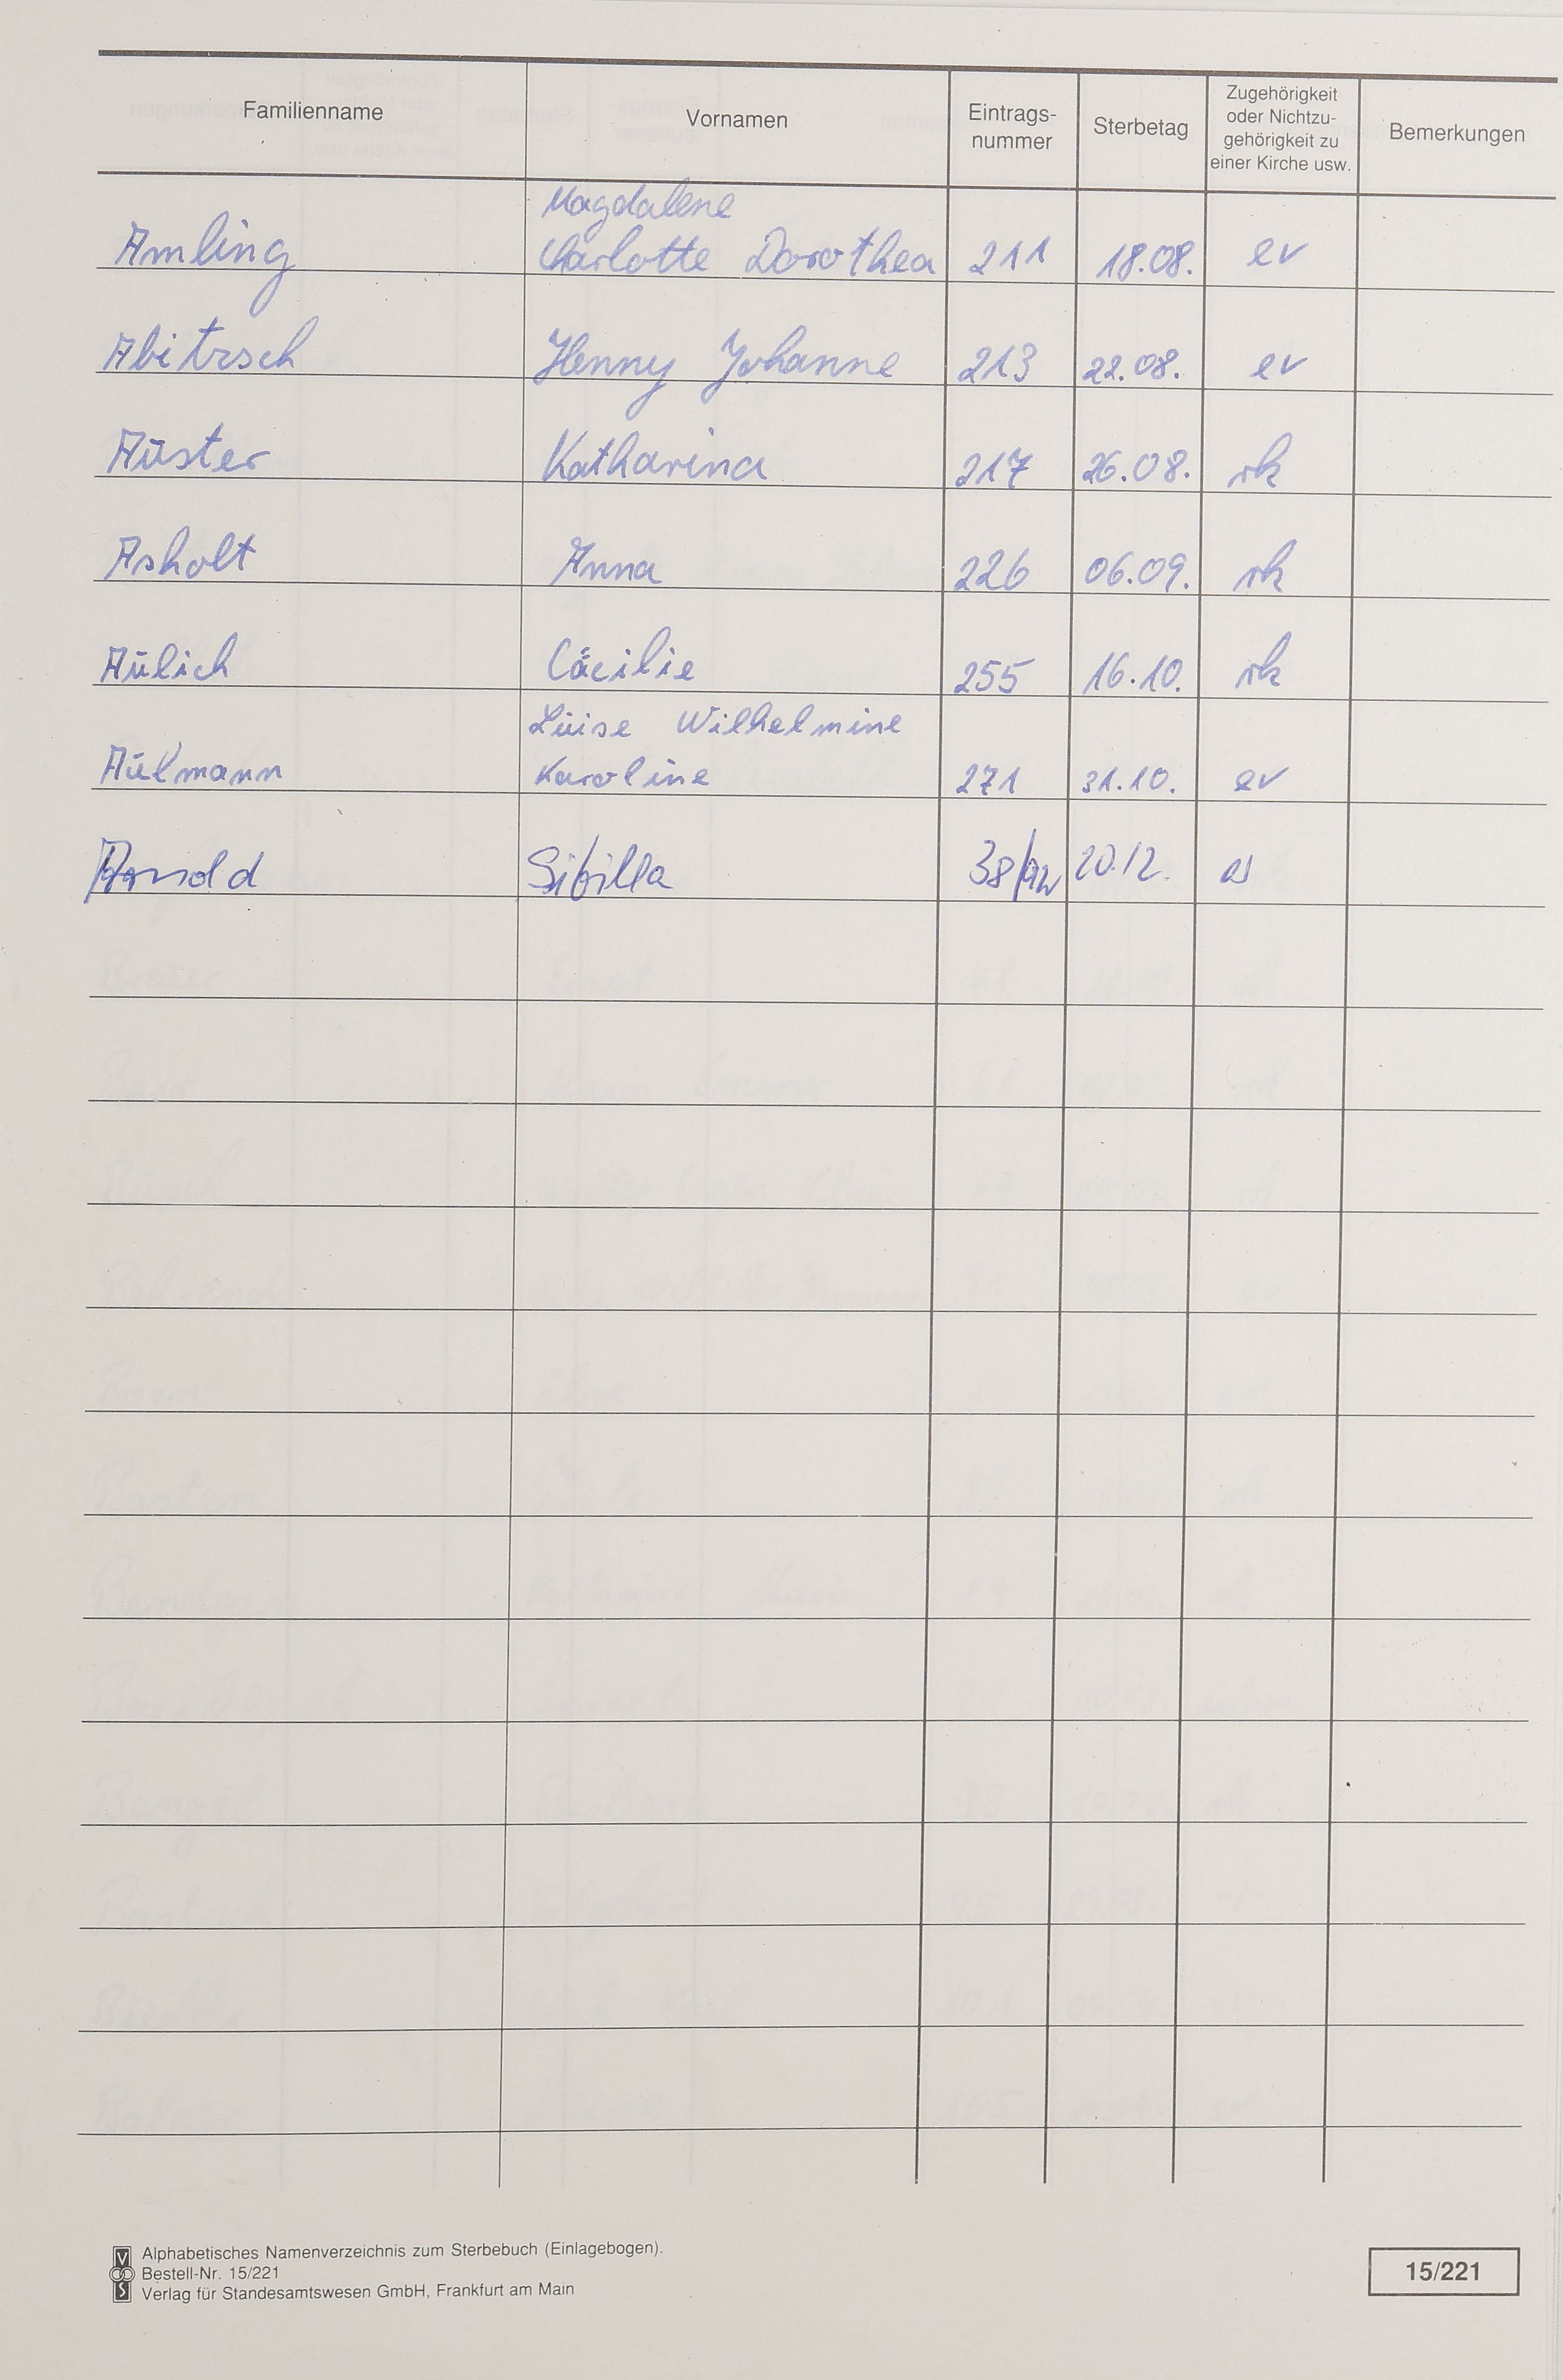 Familienname Vornamen Eintrags-nummer Sterbetag Zugehörigkeit oder Nichtzu-gehörigkeit zu einer Kirche usw. Bemerkungen
Magdalene
Amling Charlotte Dorothea 211 18.08. ev
Abitzsch Henny Johanne 213 22.08. ev
Auster Katharina 217 26.08. rk
Asholt Anna 226 06.09. rk
Aulich Cäcilie 255 16.10. rk
Luise Wilhelmine
Aulmann Karoline 271 31.10. ev
Arnold Sibilla 38/92 20.12.
Alphabetisches Namenverzeichnis zum Sterbebuch (Einlagebogen).
Bestell-Nr. 15/221
Verlag für Standesamtswesen GmbH, Frankfurt am Main
15/221